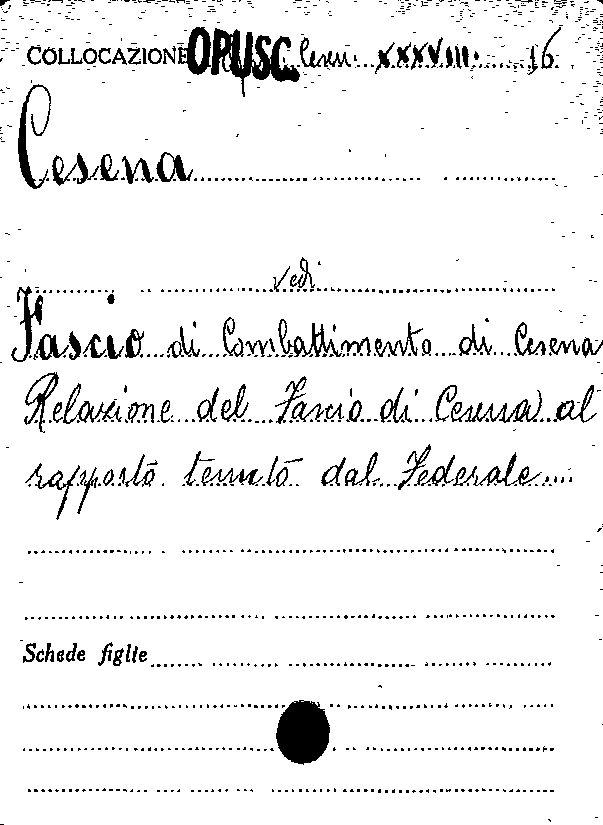 COLLOCAZIONE OPUSC. Cesen. XXXVIII. 16
Cesena
vedi
Fascio di Combattimento di Cesena
Relazione del Fascio di Cesena al
rapporto tenuto dal Federale....
Schede figlie